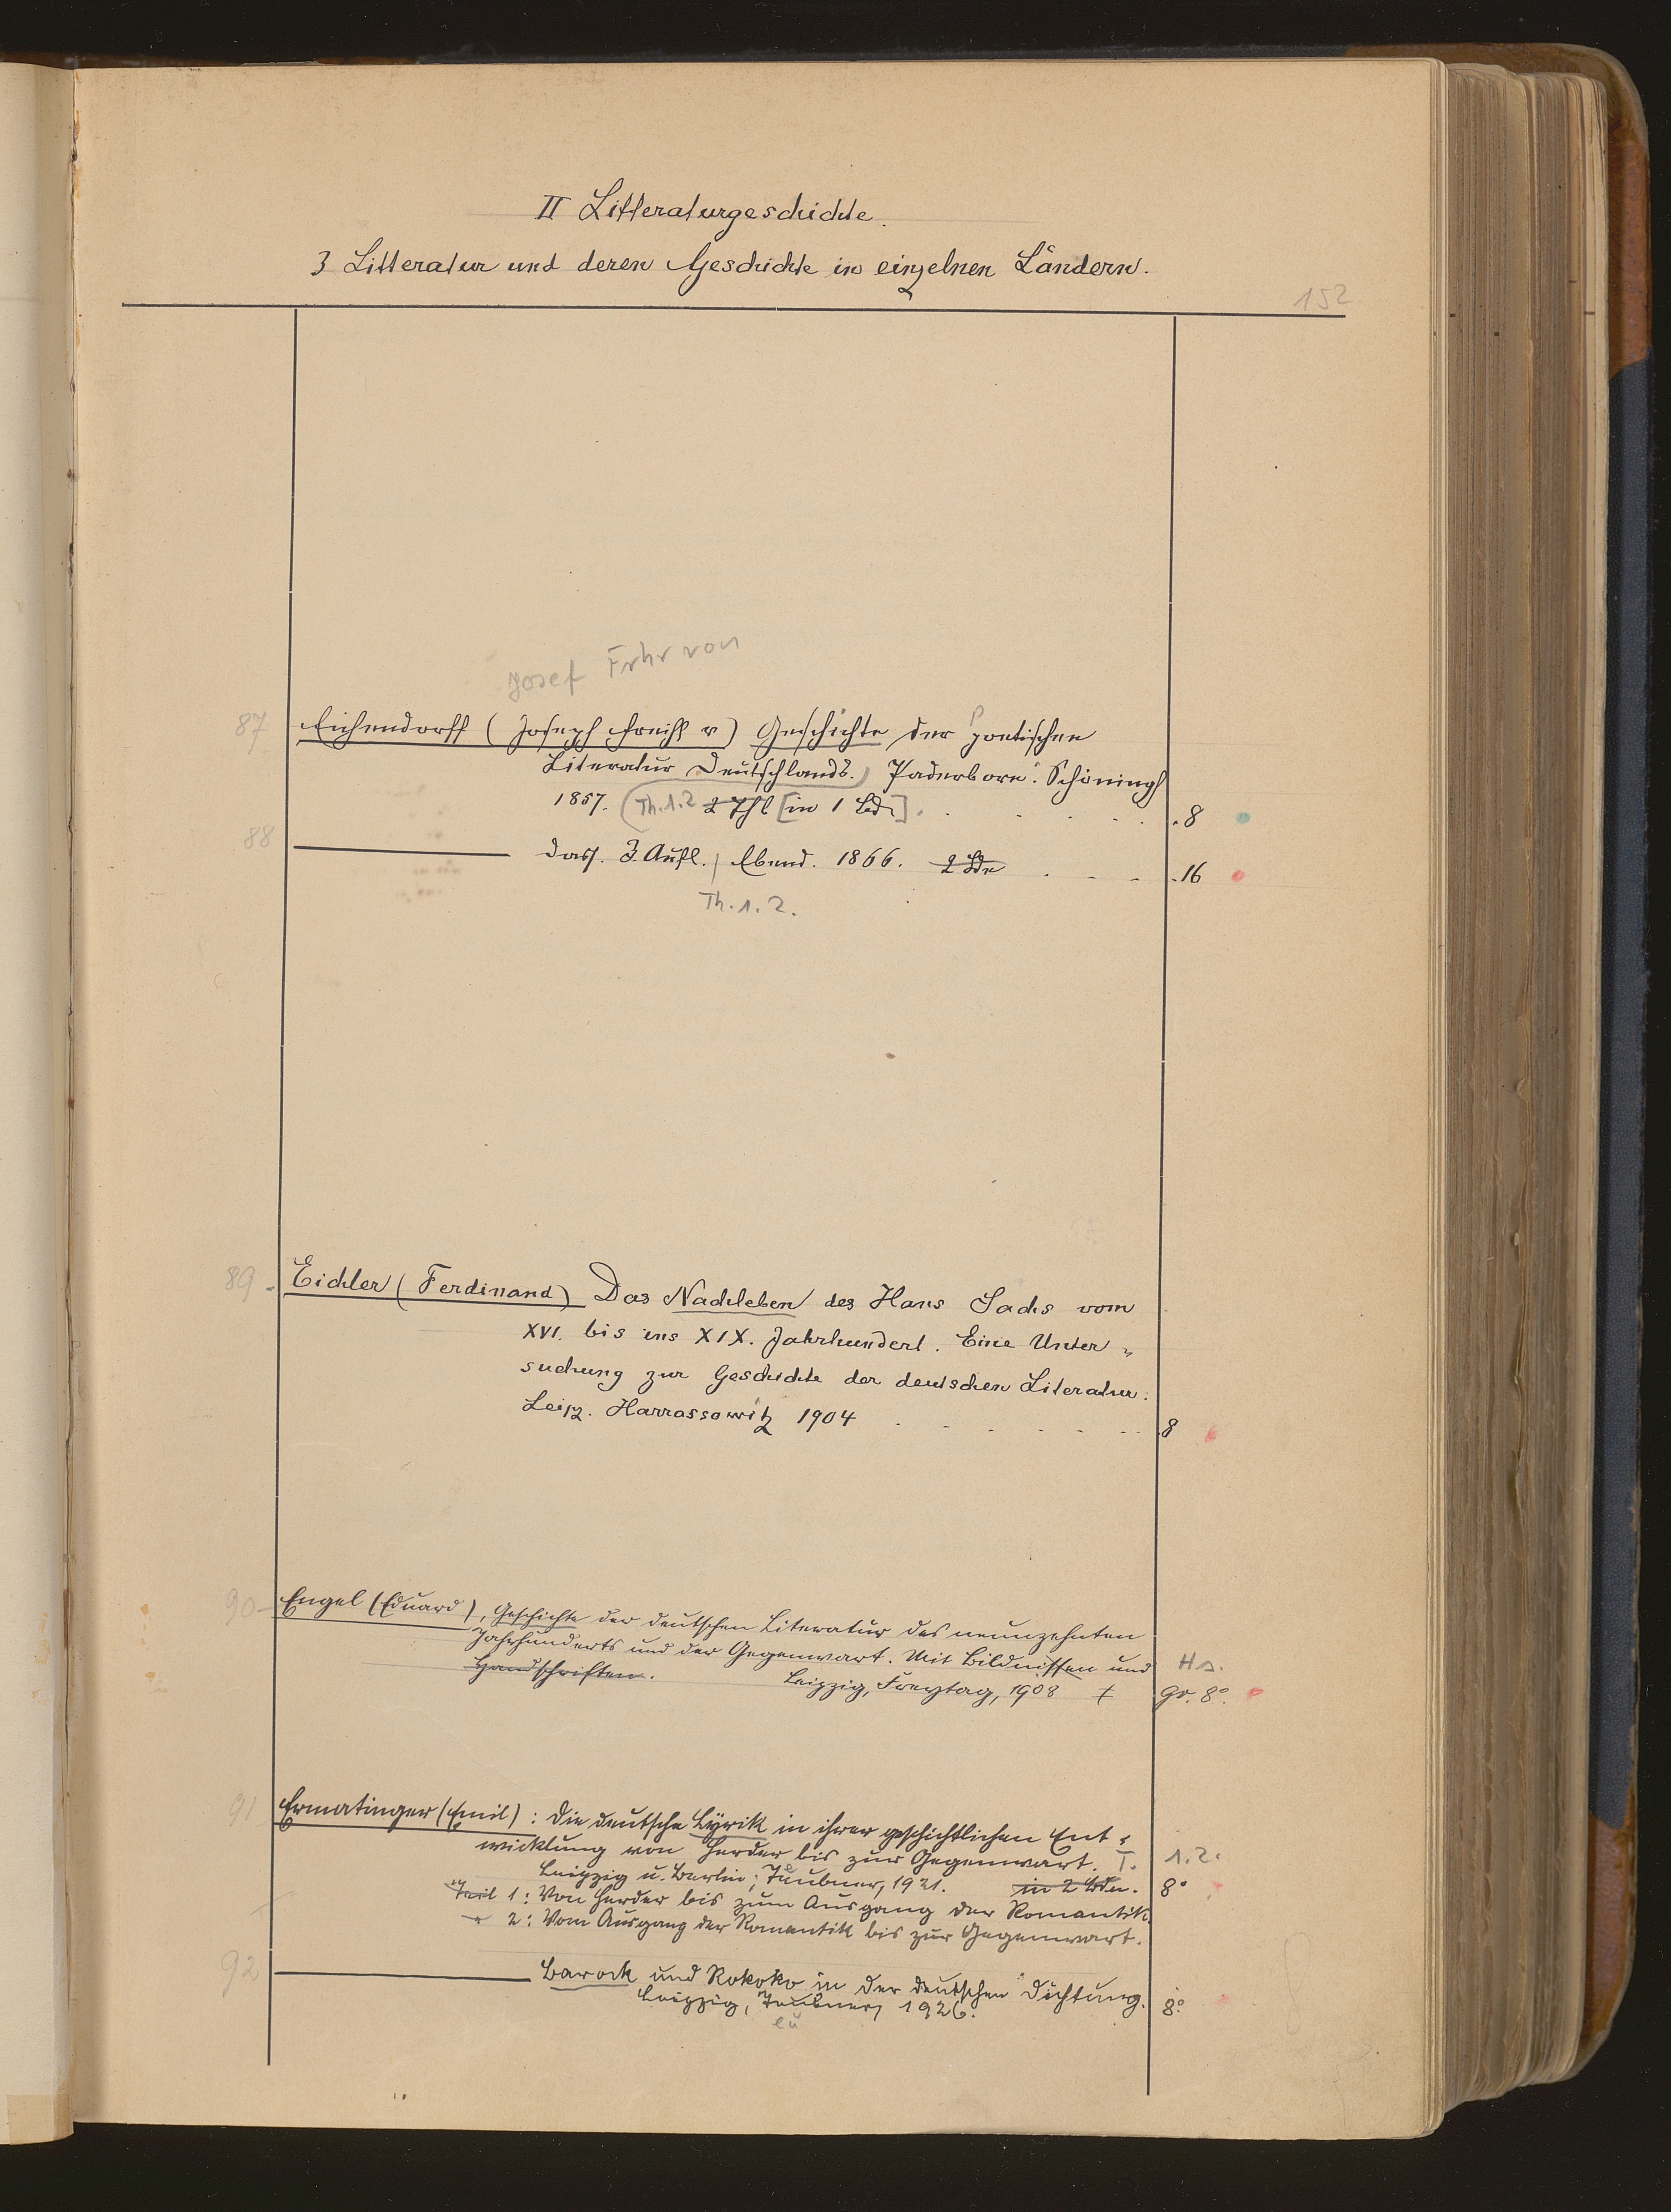 II Litteraturgeschichte.
3 Litteratur und deren Geschichte in einzelnen Ländern.
152
Josef Frhr von
87 Eichendorff (Joseph Freih v) Geschichte der poetischen
Literatur Deutschlands. Paderborn. Schöningh
1857. (Th. 1. 2 2 Thl [in 1 Bd.] . . . . . . 8
88 ——— dass. 3. Aufl. Ebend. 1866. 2 Bde . . . 16
Th. 1. 2.
89 Eichler (Ferdinand) Das Nachleben des Hans Sachs vom
XVI. bis ins XIX. Jahrhundert. Eine Unter-
suchung zur Geschichte der deutschen Literatur.
Leipz. Harrassowitz 1904 . . . . . . 8
90 Engel (Eduard), Geschichte der deutschen Literatur des neunzehnten
Jahrhunderts und der Gegenwart. Mit Bildnissen und Hs.
Handschriften. Leipzig, Freytag, 1908 gr. 8°.
91 Ermatinger (Emil): Die deutsche Lyrik in ihrer geschichtlichen Ent-
wicklung von Herder bis zur Gegenwart. T. 1. 2.
Leipzig u. Berlin; Teubner, 1921. in 2 Bden. 8°
Teil 1: Von Herder bis zum Ausgang der Romantik.
" 2: Vom Ausgang der Romantik bis zur Gegenwart.
92 ——— Barock und Rokoko in der deutschen Dichtung.
Leipzig, Teubner, 1926. 8°
eu